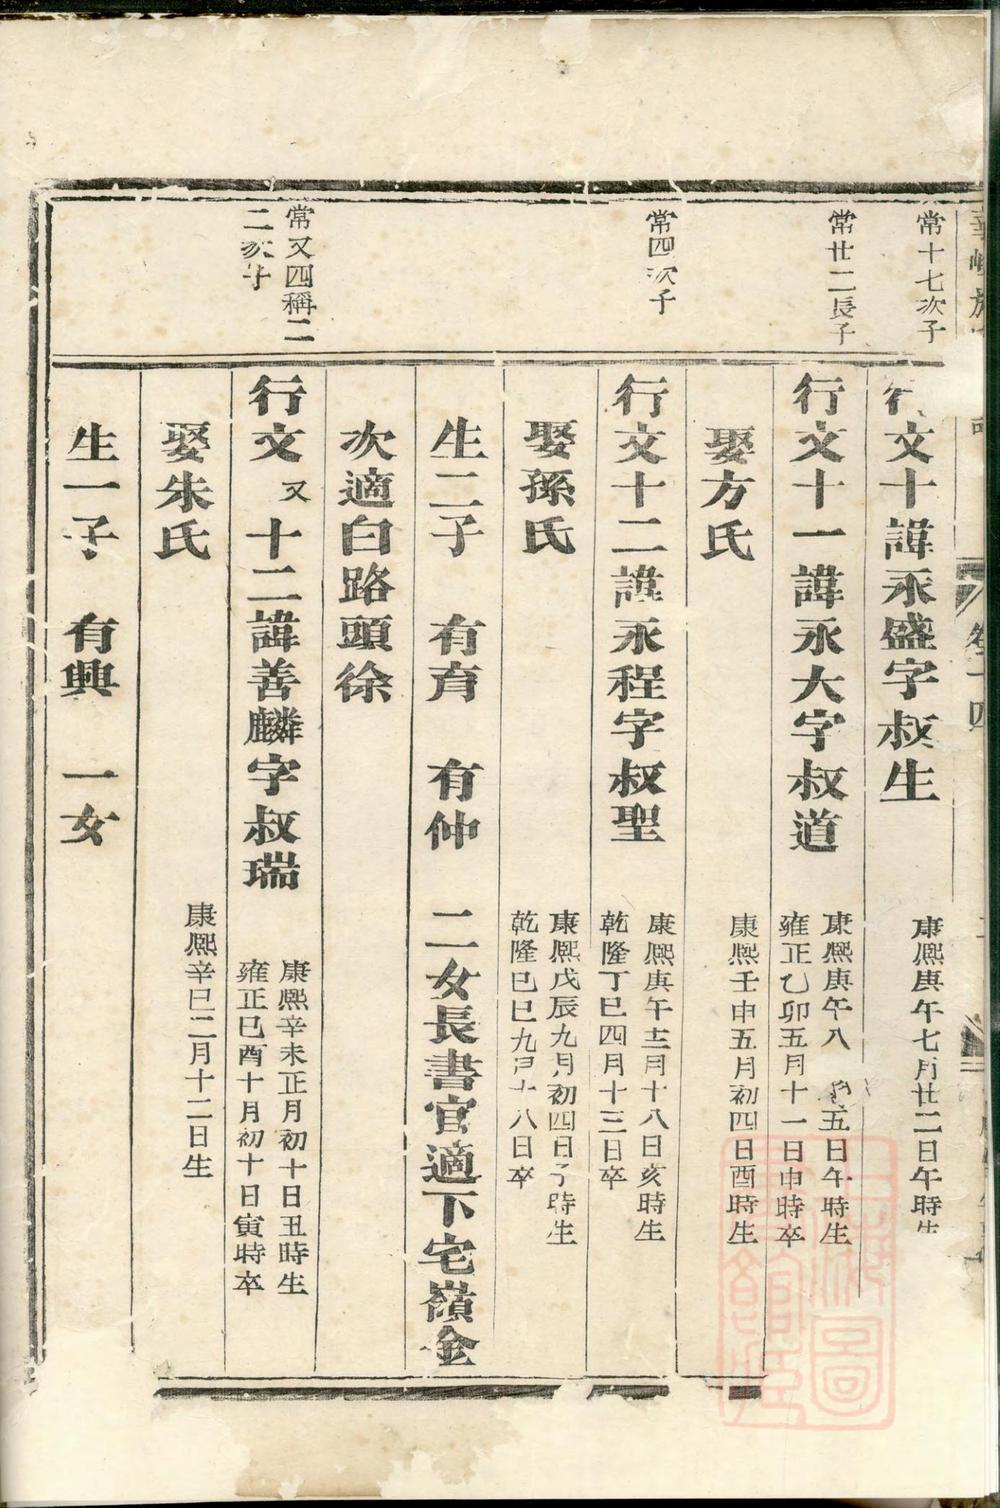 常十七次子
行文十諱永盛字叔生
康熙庚午七月廿二日午時生
常廿二長子
行文十一諱永大字叔道
康熙庚午八 五日午時生
雍正乙卯五月十一日申時卒
娶方氏
康熙壬申五月初四日酉時生
常四次子
行文十二諱永程字叔聖
康熙庚午十二月十八日亥時生
乾隆丁巳四月十三日卒
娶孫氏
康熙戊辰九月初四日子時生
乾隆己巳九月十八日卒
生二子 有育 有仲 二女長書官適下宅嶺金
次適白路頭徐
常又四稱二
二次子
行文又十二諱善麟字叔瑞
康熙辛未正月初十日丑時生
雍正己酉十月初十日寅時卒
娶朱氏
康熙辛巳二月十二日生
生一子 有興 一女